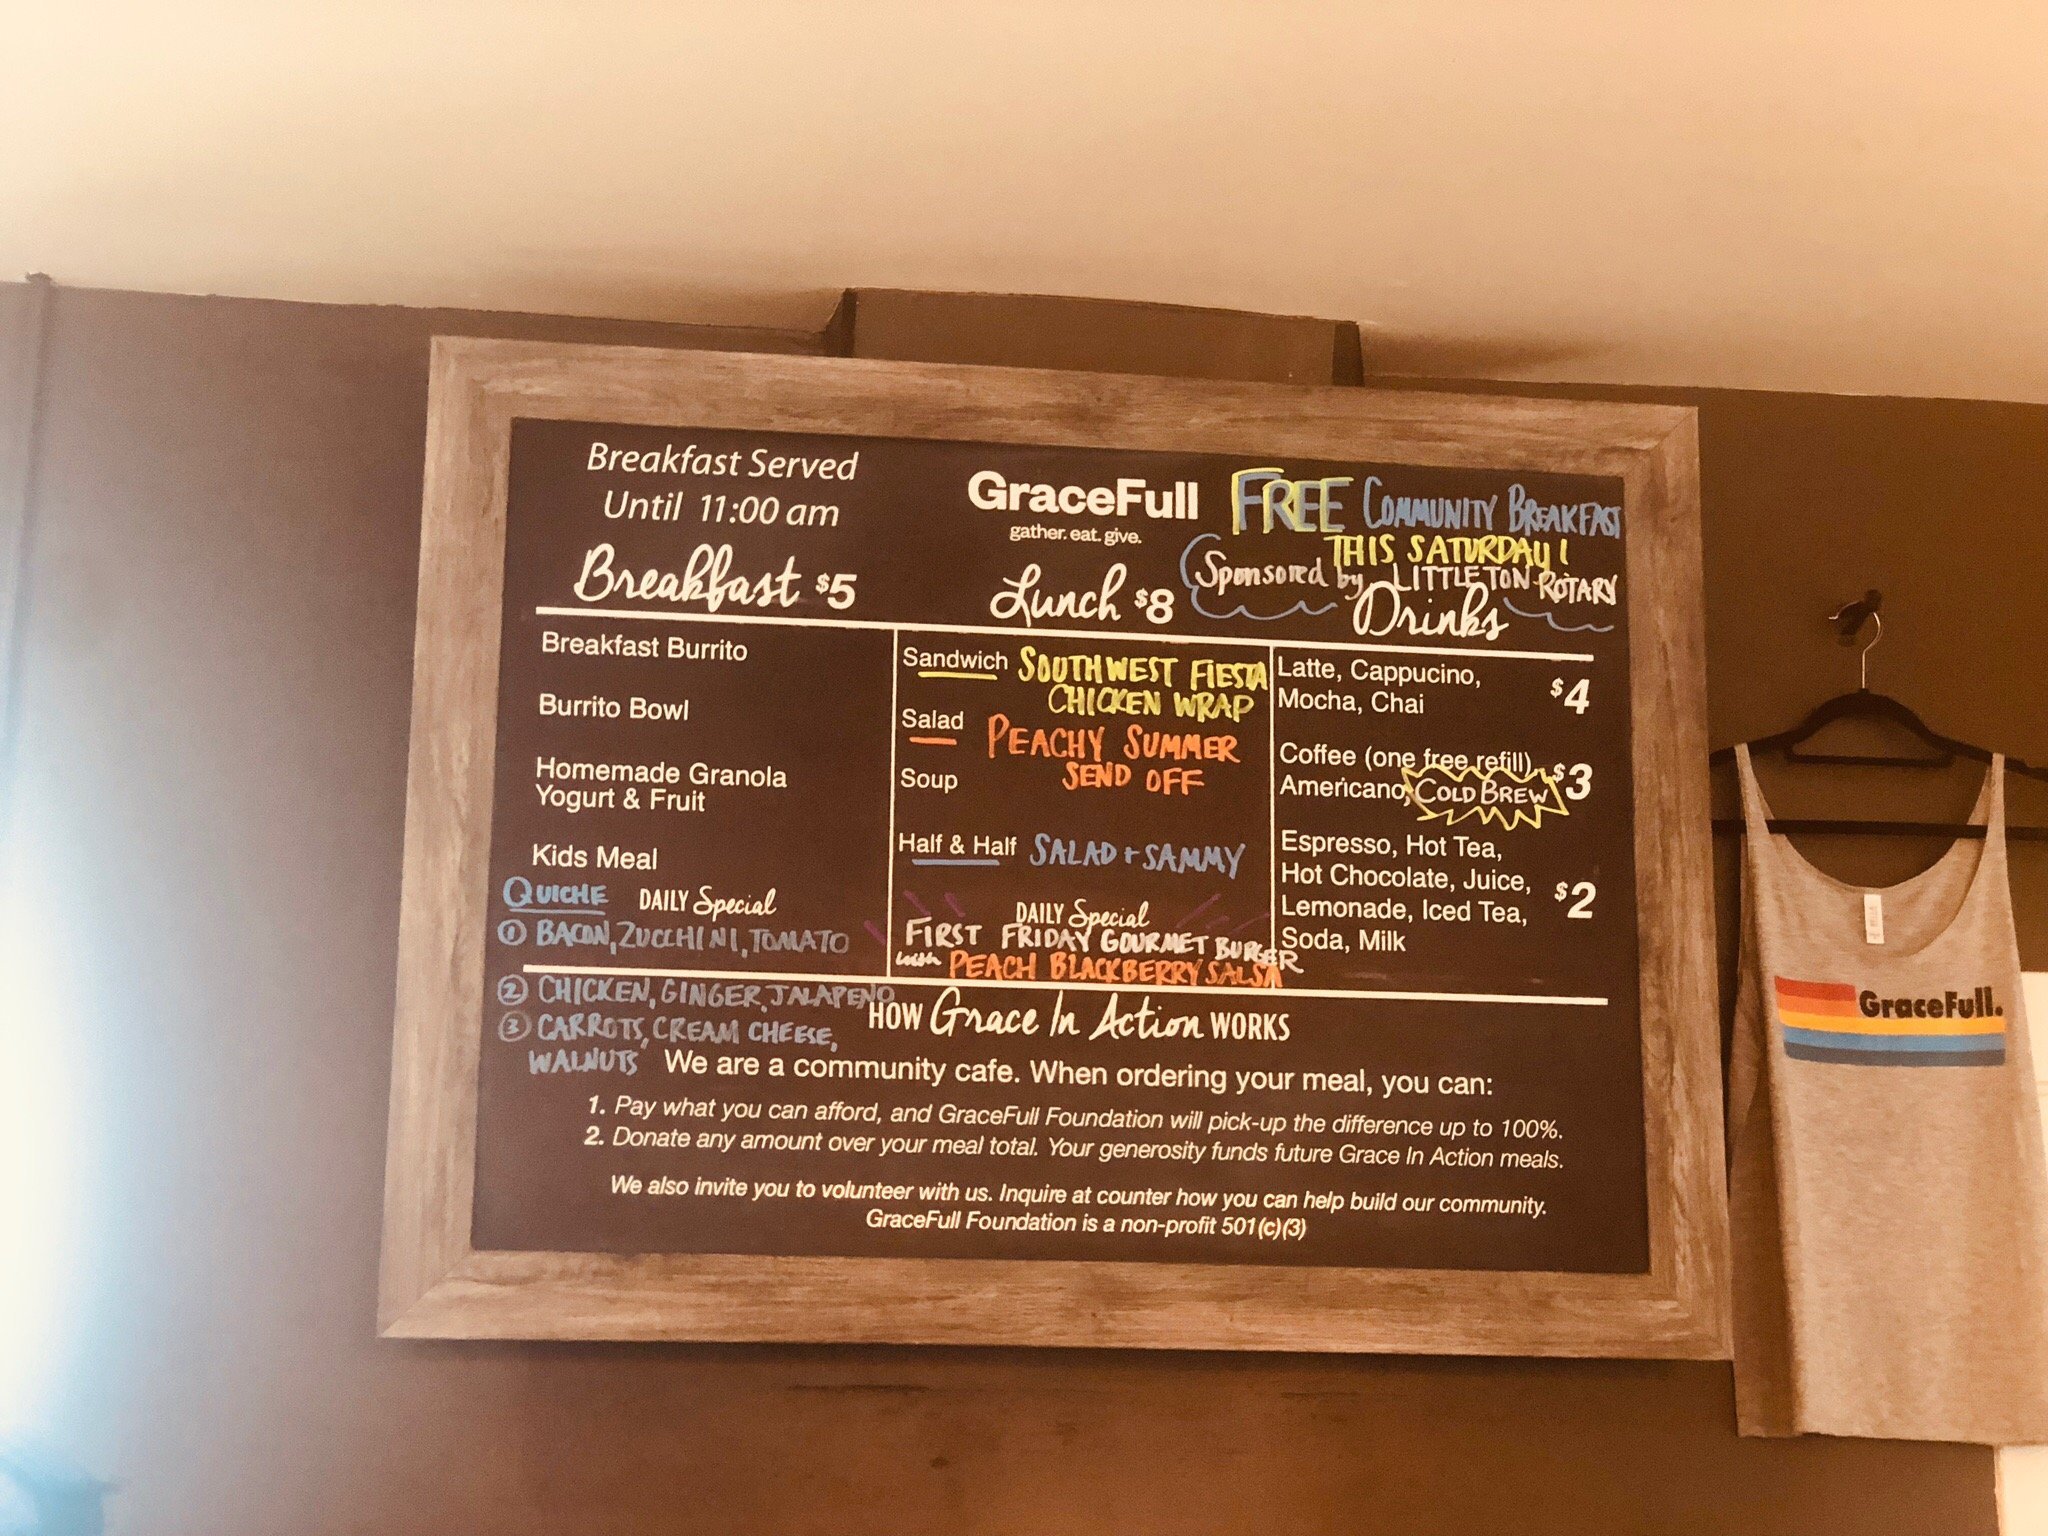 Breakfast Served
Until 11:00 am
Breakfast $5
Breakfast Burrito
Burrito Bowl
Homemade Granola
Yogurt & Fruit
Kids Meal
QUICHE DAILY Special
① BACON, ZUCCHINI, TOMATO
② CHICKEN, GINGER, JALAPENO
③ CARROTS, CREAM CHEESE,
WALNUTS
GraceFull
gather. eat. give.
Lunch $8
Sandwich SOUTHWEST FIESTA
CHICKEN WRAP
Salad PEACHY SUMMER
SEND OFF
Soup
Half & Half SALAD + SAMMY
DAILY Special
FIRST FRIDAY GOURMET BURGER
with PEACH BLACKBERRY SALSA
FREE COMMUNITY BREAKFAST
THIS SATURDAY!
Sponsored by LITTLETON ROTARY
Drinks
Latte, Cappucino,
Mocha, Chai $4
Coffee (one free refill),
Americano, COLD BREW $3
Espresso, Hot Tea,
Hot Chocolate, Juice,
Lemonade, Iced Tea, $2
Soda, Milk
HOW Grace In Action WORKS
We are a community cafe. When ordering your meal, you can:
1. Pay what you can afford, and GraceFull Foundation will pick-up the difference up to 100%.
2. Donate any amount over your meal total. Your generosity funds future Grace In Action meals.
We also invite you to volunteer with us. Inquire at counter how you can help build our community.
GraceFull Foundation is a non-profit 501(c)(3)
GraceFull.